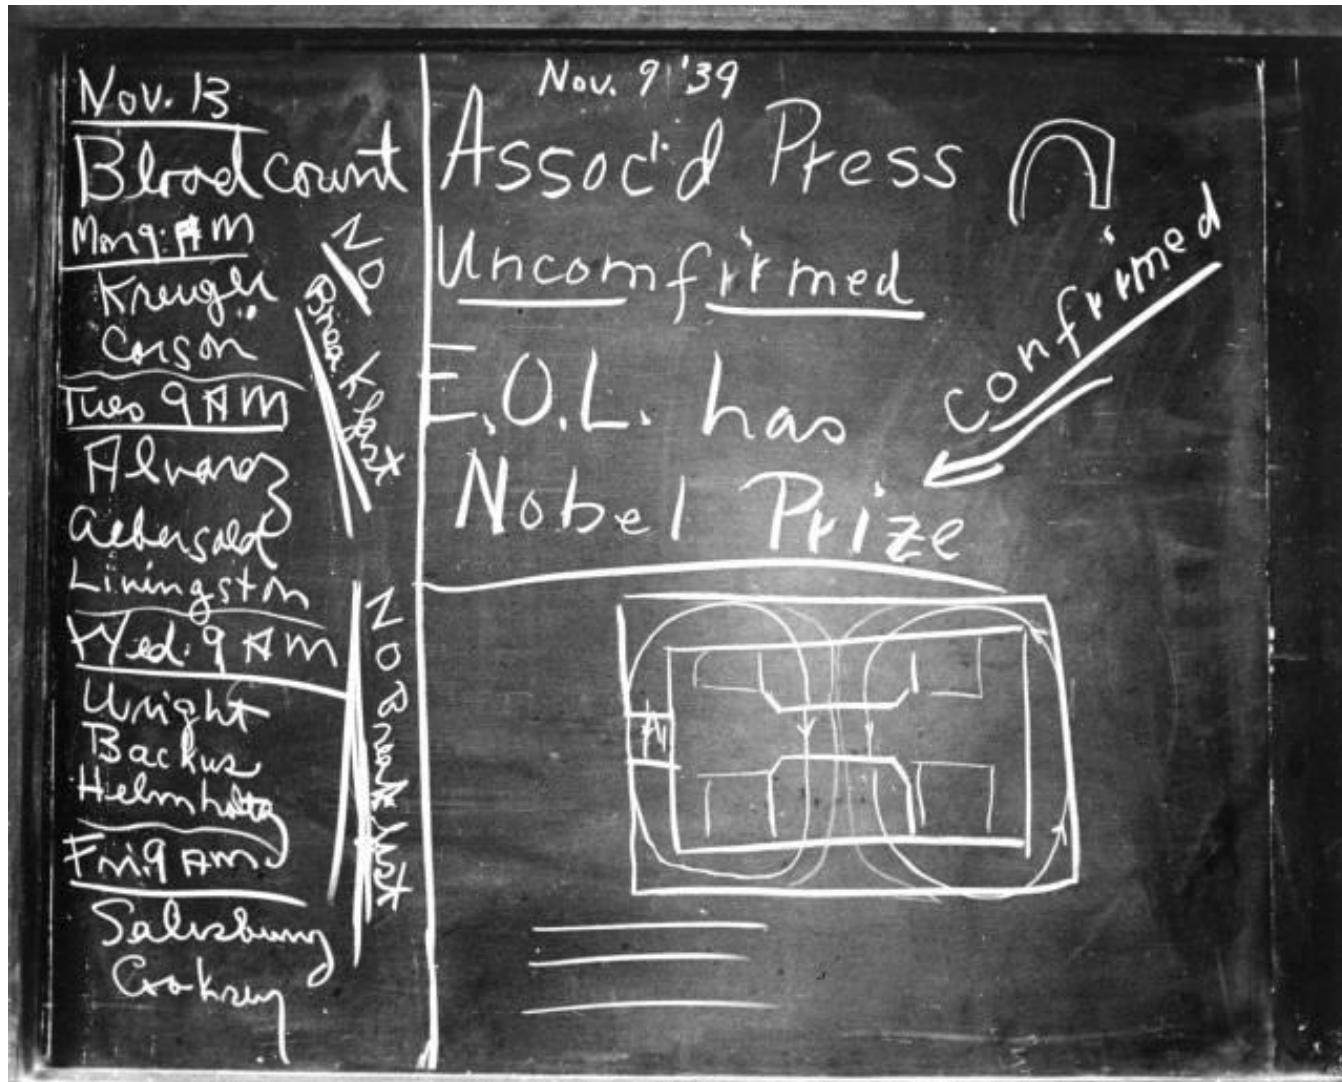 Nov. 13
Blood count
Mon 9: AM
Kreuger
Corson
Tues 9 AM
Alvarez
Aebersold
Livingston
Wed. 9 AM
Wright
Backus
Helmholtz
Fri 9 AM
Salisbury
Cooksey
No
Breakfast
No Breakfast
Nov. 9 '39
Assoc'd Press
Uncomfirmed
E.O.L. has
Nobel Prize
confirmed